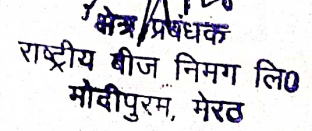 क्षेत्र प्रबंधक
राष्ट्रीय बीज निमग लि0
मोदीपुरम, मेरठ